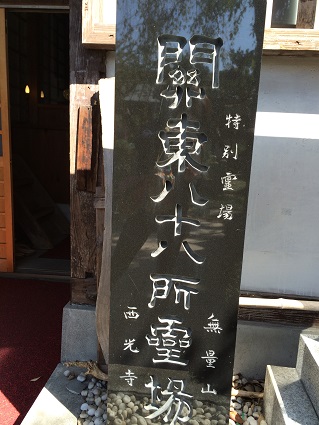 特別霊場
關東八十八所靈場
無量山
西光寺